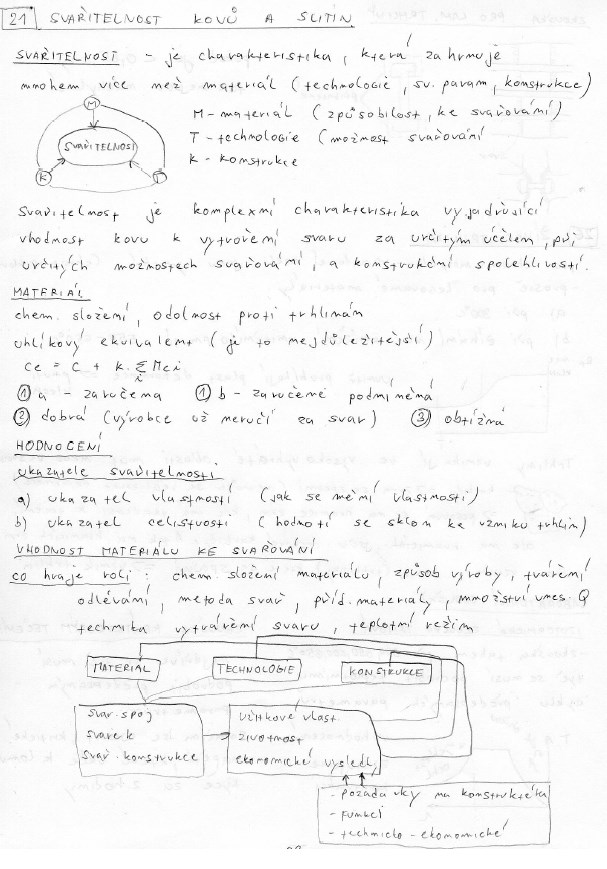 21 SVAŘITELNOST KOVŮ A SLITIN
SVAŘITELNOST - je charakteristika, která zahrnuje
mnohem více než materiál (technologie, sv. param, konstrukce)
M - materiál (způsobilost, ke svařování)
T - technologie (možnost svařování
K - konstrukce
M
SVAŘITELNOST
K
T
Svařitelnost je komplexní charakteristika vyjadřující
vhodnost kovu k vytvoření svaru za určitým účelem, při
určitých možnostech svařování, a konstrukční spolehlivostí.
MATERIÁL
chem. složení, odolnost proti trhlinám
uhlíkový ekvivalent (je to nejdůležitější)
Ce = C + k. Σ Mei
i
① a - zaručena ① b - zaručeně podmíněná
② dobrá (výrobce už neručí za svar) ③ obtížná
HODNOCENÍ
ukazatele svařitelnosti
a) ukazatel vlastností (jak se mění vlastnosti)
b) ukazatel celistvosti (hodnotí se sklon ke vzniku trhlin)
VHODNOST MATERIÁLU KE SVAROVÁNÍ
co hraje roli: chem. složení materiálu, způsob výroby, tváření
odlévání, metoda svař, příd. materiály, množství vnes. Q
technika vytváření svaru, teplotní režim
MATERIAL TECHNOLOGIE KONSTRUKCE
svar. spoj
svarek
svař. konstrukce
užitkové vlast.
životnost
ekonomické výsledky
- požadavky na konstruktéra
- funkci
- technicko-ekonomické